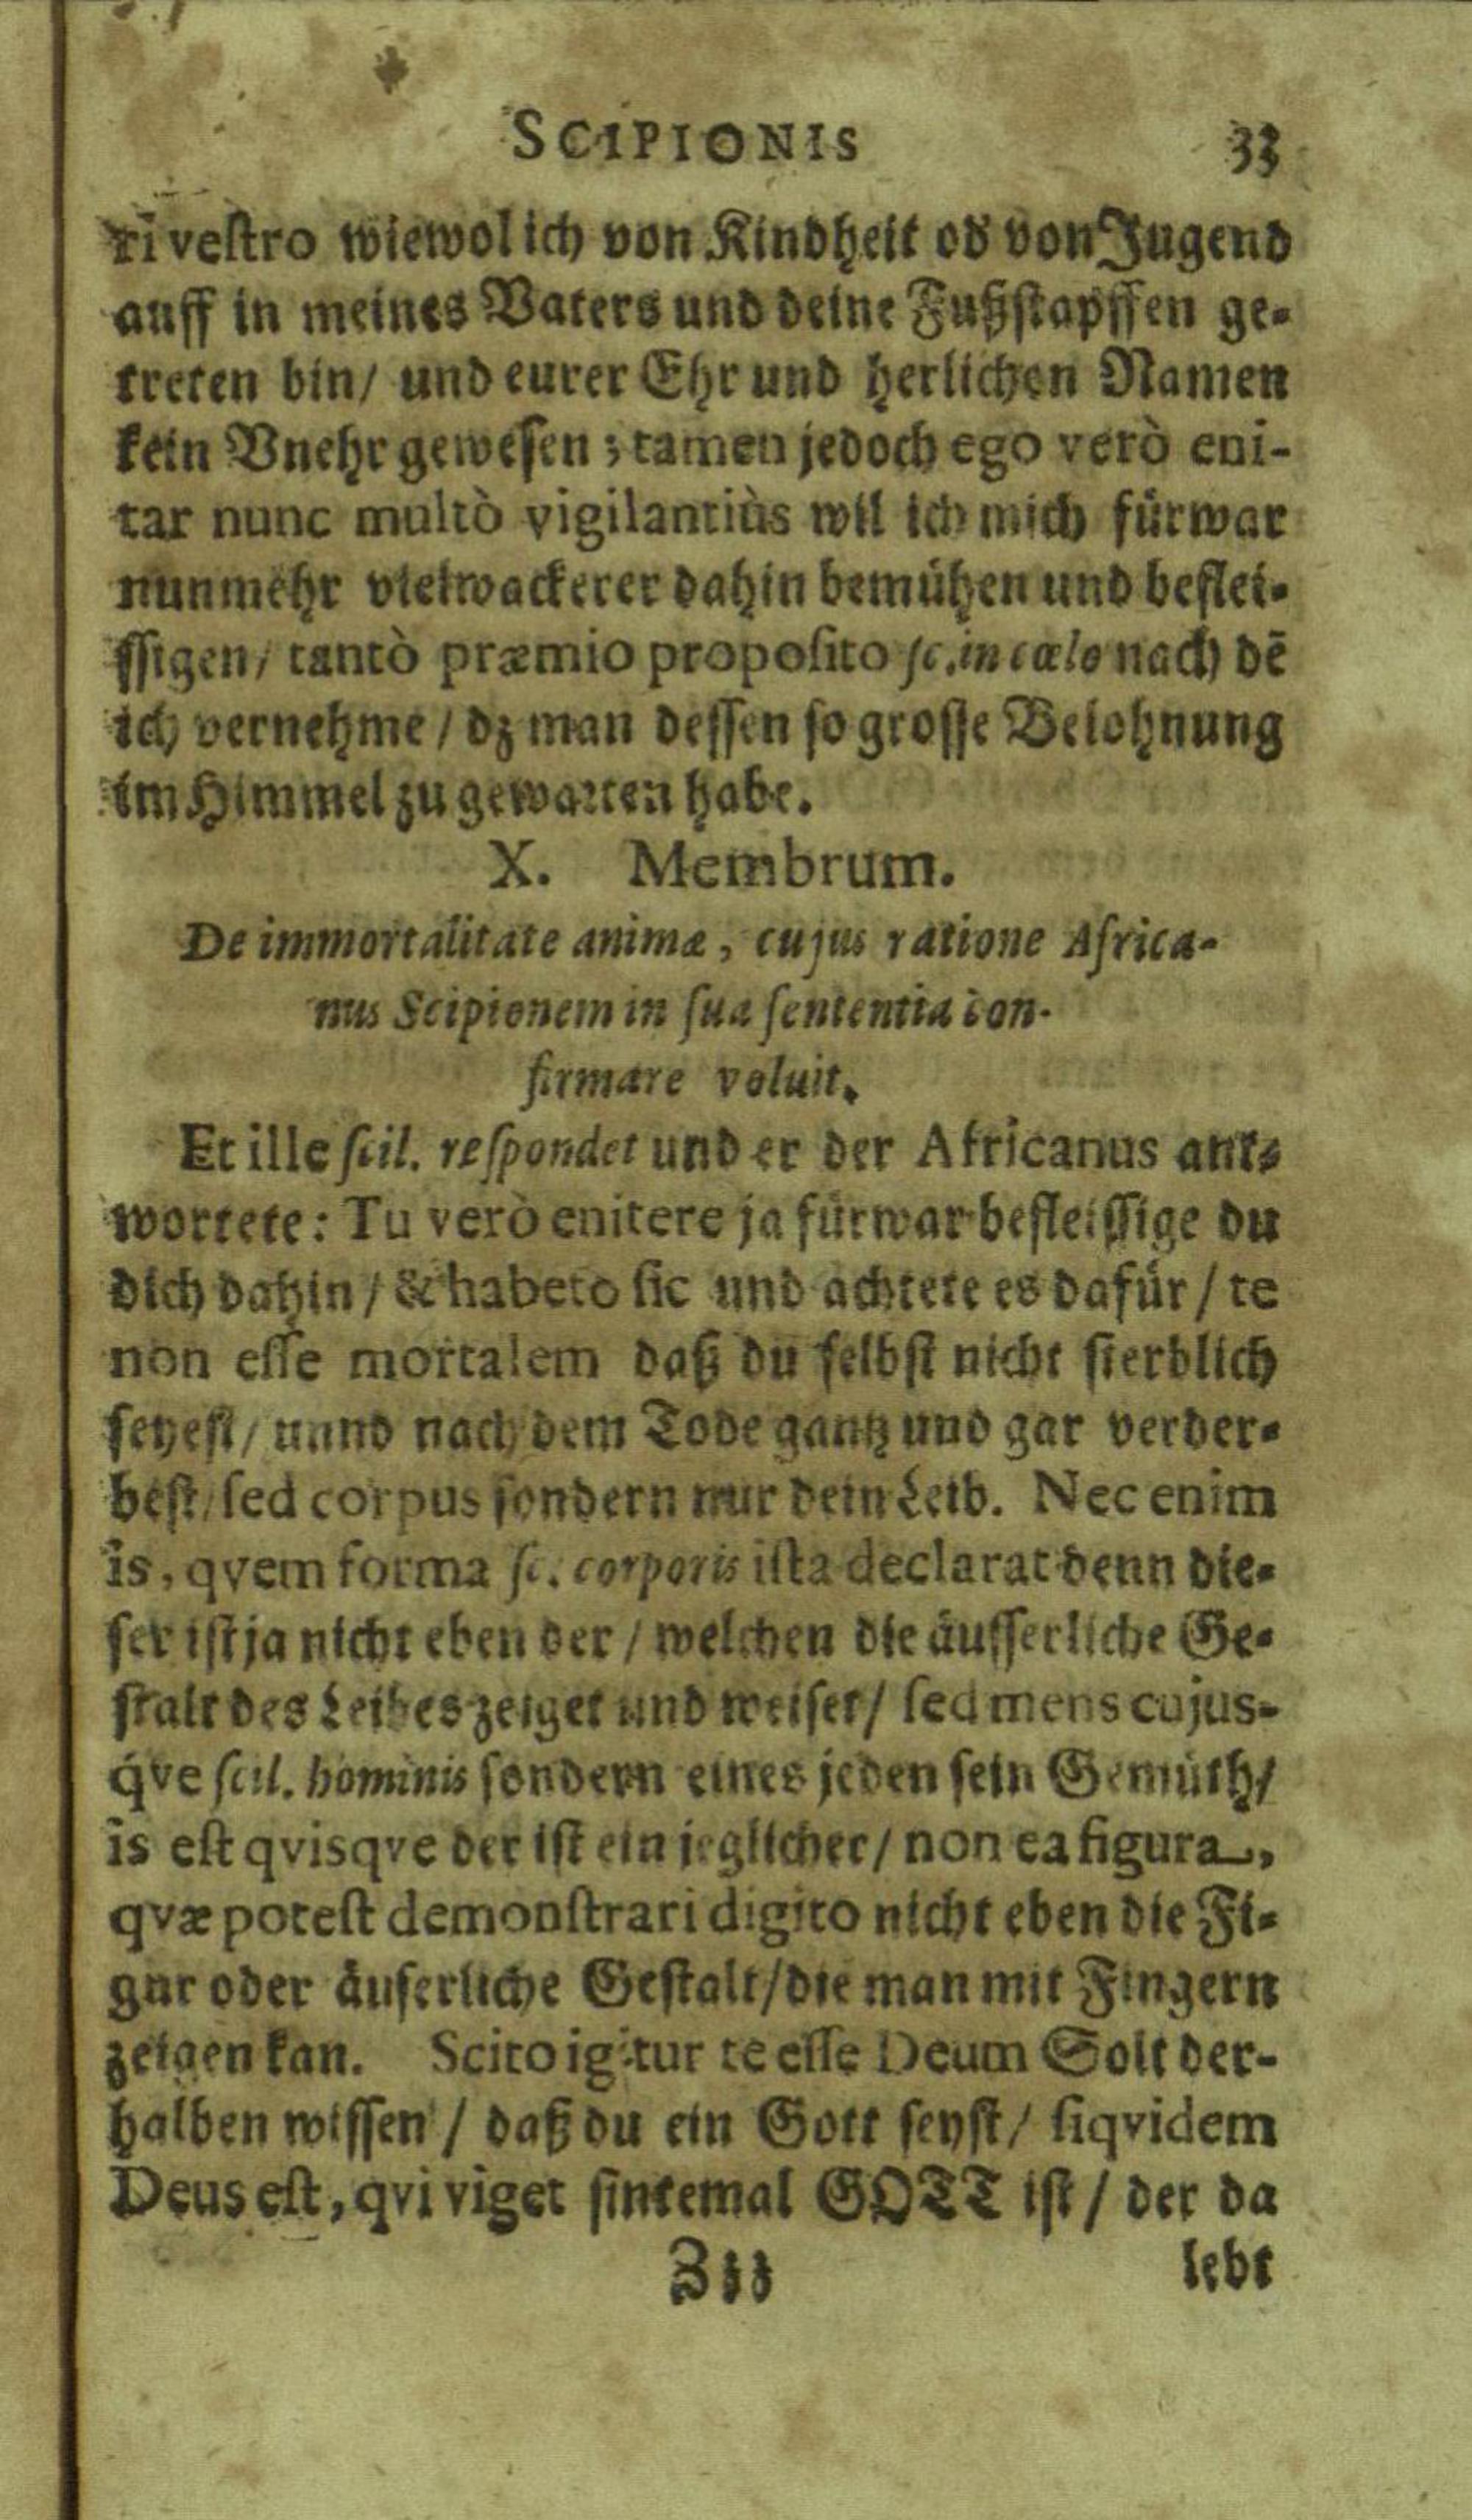 SCIPIONIS 33
ri veſtro wiewol ich von Kindheit od von Jugend
auff in meines Vaters und deine Fußſtapffen ge-
treten bin/ und eurer Ehr und herlichen Namen
kein Vnehr geweſen; tamen jedoch ego verò eni-
tar nunc multò vigilantiùs wil ich mich fürwar
nunmehr vielwackerer dahin bemühen und beflei-
ſſigen/ tantò præmio propoſito ſc. in cælo nach dē
ich vernehme/ dz man deſſen ſo groſſe Belohnung
im Himmel zu gewarten habe.
X. Membrum.
De immortalitate animæ, cujus ratione Africa-
nus Scipionem in ſua ſententia con-
firmare voluit.
Et ille ſcil. reſpondet und er der Africanus ant-
wortete: Tu verò enitere ja fürwar befleiſſige du
dich dahin/ & habeto ſic und achtete es dafür/ te
non eſſe mortalem daß du ſelbſt nicht ſterblich
ſeyeſt/ unnd nach dem Tode gantz und gar verder-
beſt/ ſed corpus ſondern nur dein Leib. Nec enim
is, qvem forma ſc. corporis iſta declarat denn die-
ſer iſt ja nicht eben der/ welchen die äuſſerliche Ge-
ſtalt des Leibes zeiget und weiſet/ ſed mens cujus-
qve ſcil. hominis ſondern eines jeden ſein Gemüth/
is eſt qvisqve der iſt ein jeglicher/ non ea figura,
qvæ poteſt demonſtrari digito nicht eben die Fi-
gur oder äuſerliche Geſtalt/ die man mit Fingern
zeigen kan. Scito igitur te eſſe Deum Solt der-
halben wiſſen/ daß du ein Gott ſeyſt/ ſiqvidem
Deus eſt, qvi viget ſintemal GOTT iſt/ der da
Zzz lebt